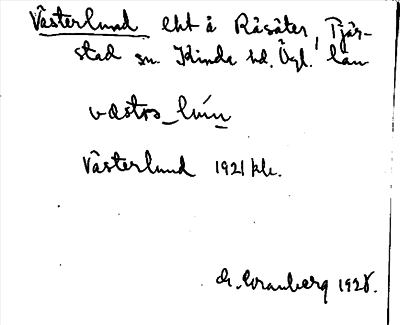 Västerlund lht å Råsäter, Tjär-
stad sn. Kinda hd. Ögl. län
Västerlund 1921 kk.
Cranberg 1928.